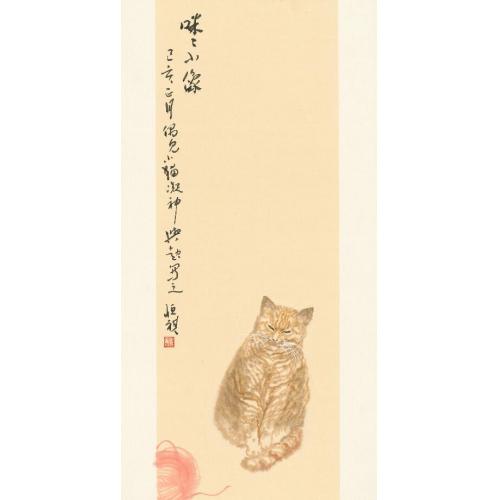 咪咪小像
己亥正月偶见小猫凝神兴起写之 恒祺